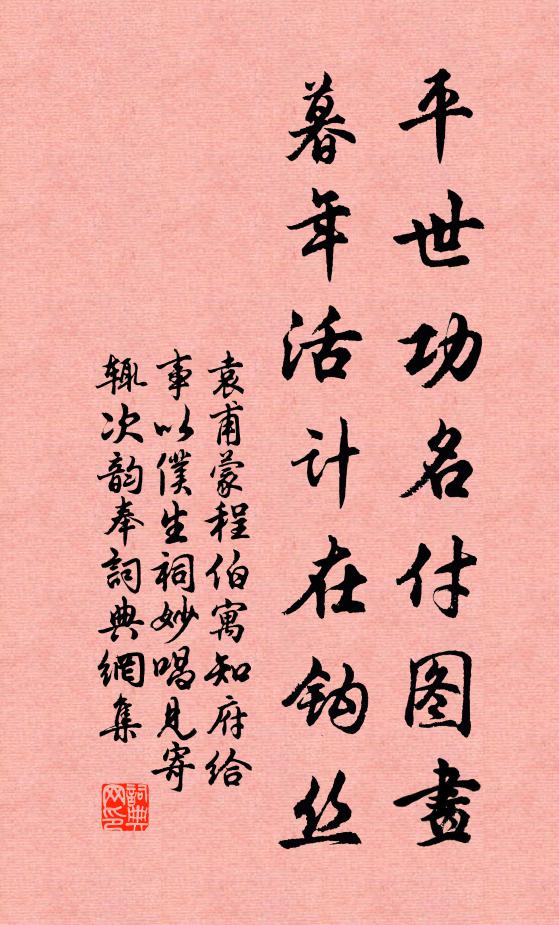 平世功名付图畫
暮年活计在钩丝
袁甫蒙程伯寓知府给
事以僕生祠妙唱见寄
辄次韵奉詞典網集
詞典
网印